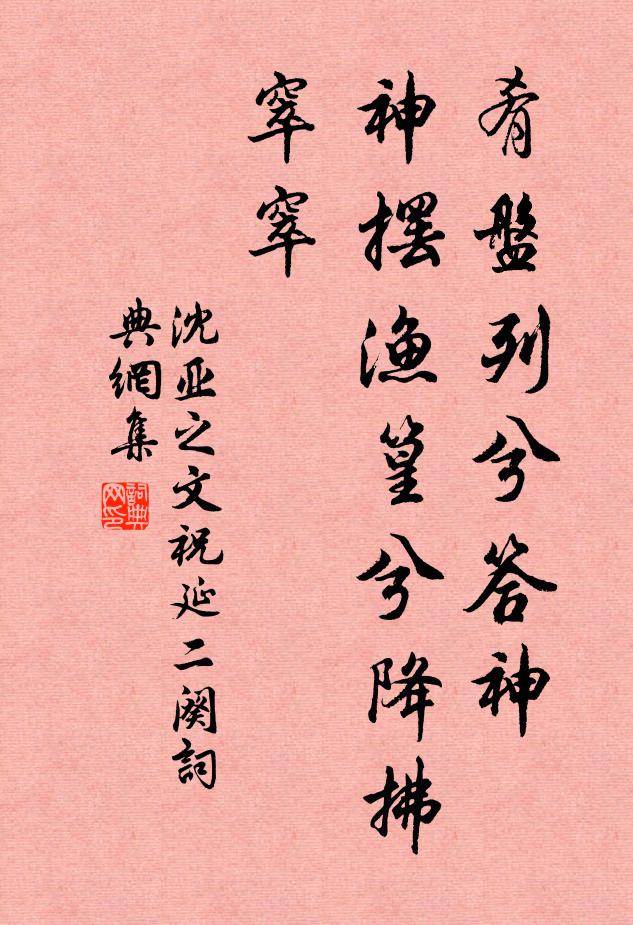 肴盤列兮答神
神擺漁篁兮降拂
窣窣
沈亚之文祝延二闋詞
典網集
詞典网印